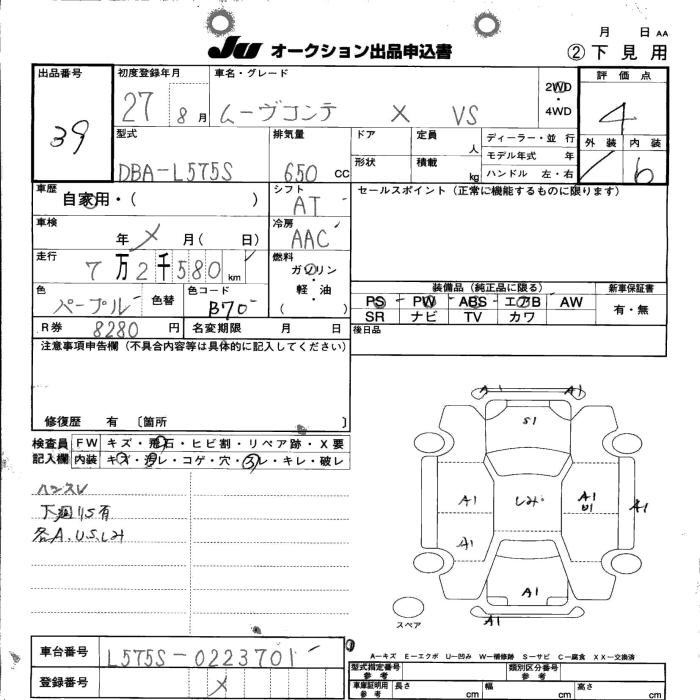 月 日 AA
JU オークション出品申込書 ②下見用
出品番号 初度登録年月 車名・グレード 評価点
39 27 8月 ムーヴコンテ X VS 2WD・4WD 4
型式 排気量 ドア 定員 人 ディーラー・並行 外装 内装
DBA-L575S 650 CC 形状 積載 kg モデル年式 年 6
ハンドル 左・右
車歴 自家用・( ) シフト AT セールスポイント(正常に機能するものに限ります)
車検 年 月( 日) 冷房 AAC
走行 7万2千580 km 燃料 ガソリン・軽・油 ( )
色 パープル 色替 色コード B70
装備品(純正品に限る) 新車保証書
PS PW ABS エアB AW 有・無
SR ナビ TV カワ
R券 8280 円 名変期限 月 日 後日品
注意事項申告欄(不具合内容等は具体的に記入してください)
修復歴 有 〔箇所 〕
検査員 FW キズ・飛石・ヒビ割・リペア跡・X要
記入欄 内装 キズ・汚レ・コゲ・穴・スレ・キレ・破レ
ヘンスレ
下廻りS有
各A.U.Sしみ
A1 A1
S1
A1 しみ A1 U1 A1
A1
A1
スペア A1
A-キズ E-エクボ U-凹み W-補修跡 S-サビ C-腐食 XX-交換済
車台番号 L575S-0223701
登録番号 X
型式指定番号 参考 類別区分番号 参考
車庫証明用 参考 長さ cm 幅 cm 高さ cm